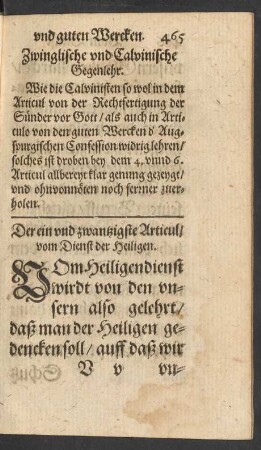 vnd guten Wercken. 465
Zwinglische vnd Calvinische
Gegenlehr.
Wie die Calvinisten so wol in dem
Articul von der Rechtfertigung der
Sünder vor Gott / als auch in Arti-
culo von den guten Wercken d' Aug-
spurgischen Confession widrig lehren /
solches ist droben bey dem 4. vnnd 6.
Articul allbereyt klar genung gezeygt /
vnd ohnvonnöten noch ferrner zuer-
holen.
Der ein vnd zwantzigste Articul /
vom Dienst der Heiligen.
VOm Heiligendienst
wirdt von den vn-
sern also gelehrt /
daß man der Heiligen ge-
dencken soll / auff daß wir
V v vn-